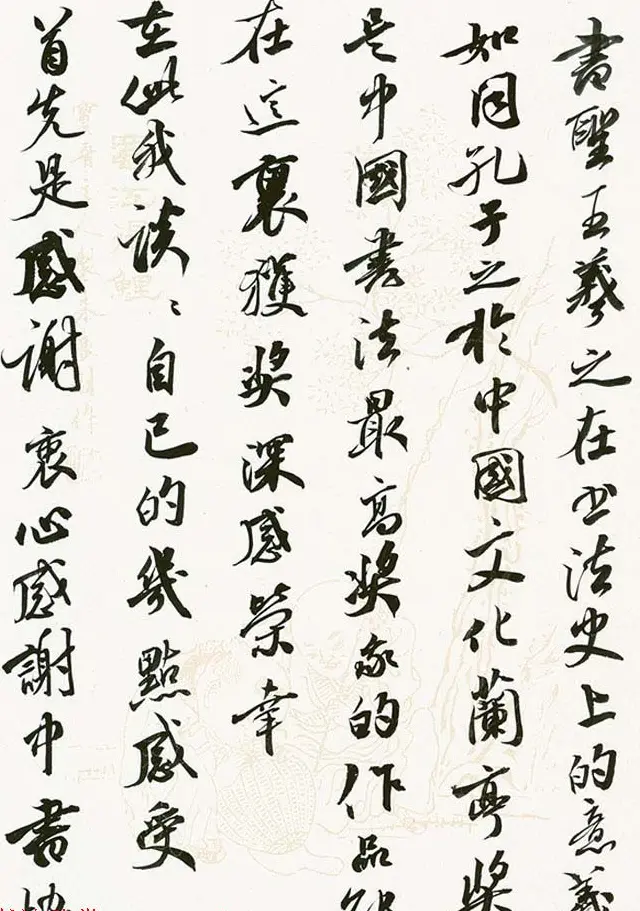 書聖王羲之在书法史上的意義
如同孔子之於中國文化蘭亭奖
是中國書法最高奖我的作品能
在這裏獲奖深感榮幸
在此我談談自己的幾點感受
首先是感謝衷心感謝中書协